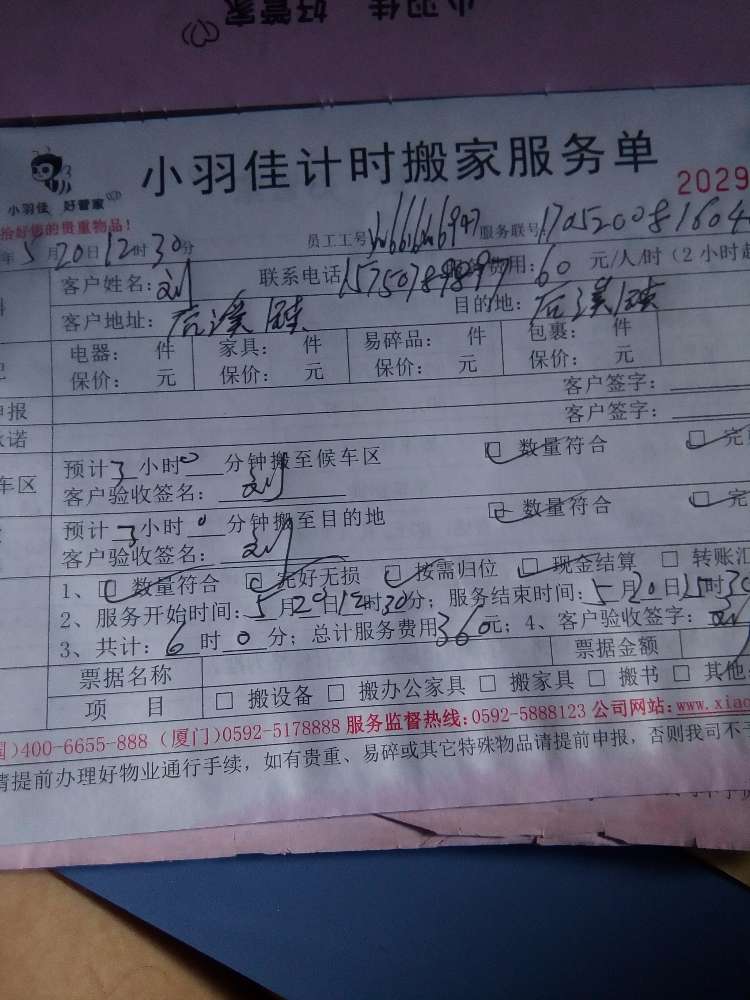 小羽佳 好管家
小羽佳计时搬家服务单
小羽佳 好管家
2029
的贵重物品!
年5月20日12时30分 员工工号 服务联号:
客户姓名:刘 联系电话 15750789897 费用:60 元/人/时(2小时起
客户地址:后溪 目的地:后溪
电器: 件 家具: 件 易碎品: 件 包裹: 件
保价: 元 保价: 元 保价: 元 保价: 元
客户签字:
申报 客户签字:
诺
车区 预计3小时0分钟搬至候车区 数量符合 完
客户验收签名:刘
预计3小时0分钟搬至目的地 数量符合 完
客户验收签名:刘
1、数量符合 完好无损 按需归位 现金结算 转账汇
2、服务开始时间:5月20日12时30分;服务结束时间:5月20日15时30
3、共计:6时0分;总计服务费用360元;4、客户验收签字:刘
票据名称 票据金额
项 目 搬设备 搬办公家具 搬家具 搬书 其他
国)400-6655-888 (厦门)0592-5178888 服务监督热线:0592-5888123 公司网站:www.xiao
请提前办理好物业通行手续,如有贵重、易碎或其它特殊物品请提前申报,否则我司不